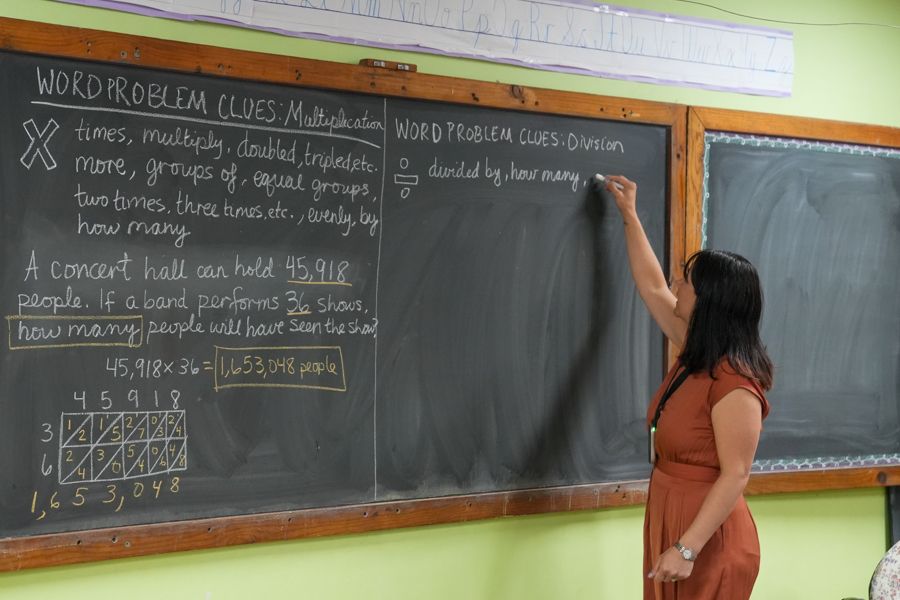 WORD PROBLEM CLUES: Multiplication
X times, multiply, doubled, tripled, etc.
more, groups of, equal groups,
two times, three times, etc., evenly, by
how many
A concert hall can hold 45,918
people. If a band performs 36 shows,
how many people will have seen the show?
45,918 x 36 = 1,653,048 people
4 5 9 1 8
3 1 2 1 5 2 7 0 3 2 4
6 2 4 3 0 5 4 0 6 4 8
1, 6 5 3, 0 4 8
WORD PROBLEM CLUES: Division
÷ divided by, how many,